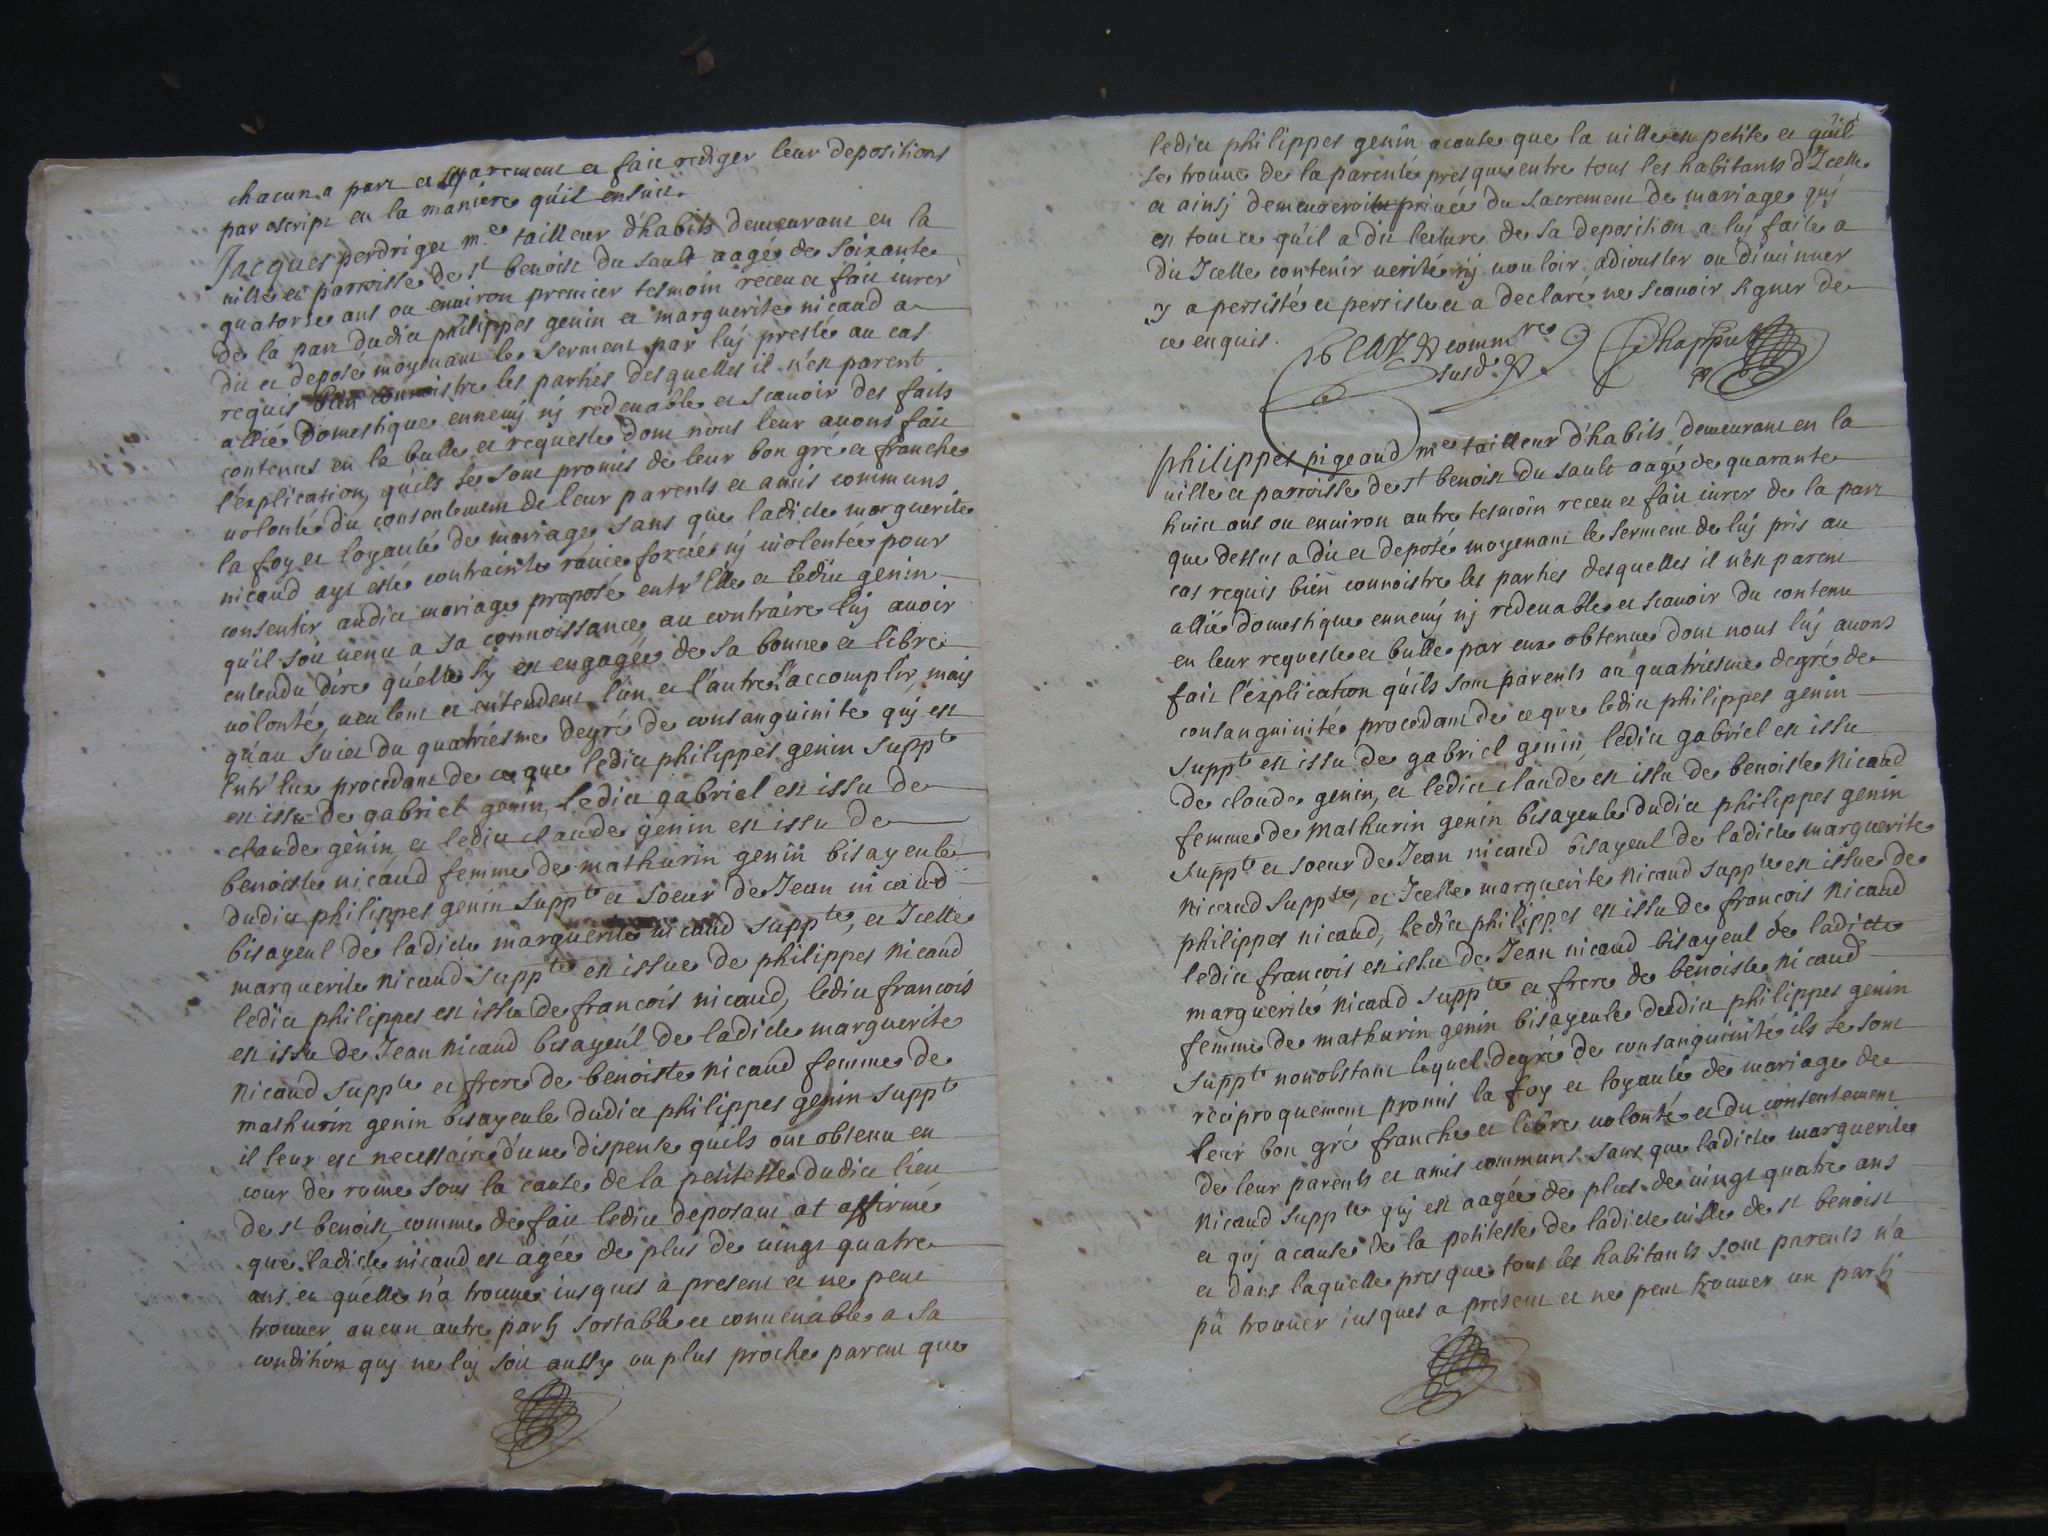 chacun a part et separement et fait rediger leur depositions
par escript en la maniere qu'il ensuit.
Jacques perdriget me tailleur d'habits demeurant en la
ville et parroisse de st benoist du sault aagé de soixante
quatorze ans ou environ premier tesmoin receu et fait iurer
de la part dudict philippes genin et marguerite nicaud a
dit et deposé moyenant le serment par luy presté au cas
requis bien connoistre les parties desquelles il n'est parent
allié domestique ennemy ny redeuable et scauoir des faits
contenus en la bulle et requeste dont nous leur auons fait
l'explication, qu'ils se sont promis de leur bon gré et franche
uolonté du consentement de leur parents et amis communs
la foy et loyauté de mariage sans que ladicte marguerite
nicaud ayt esté contrainte rauie forcée ny uiolentée pour
consentir audict mariage proposé entr'Elle et ledict genin
qu'il soit uenu a sa connoissance, au contraire luy auoir
entendu dire qu'elle s'y est engagée de sa bonne et libre
uolonté ueulent et entendent l'un et l'autre l'accomplir, mais
qu'au suiet du quatriesme degré de consanguinité quy est
Entr'Eux procedant de ce que ledict philippes genin suppt
est issu de gabriel genin, ledict gabriel est issu de
claude genin et ledict claude genin est issu de
benoiste nicaud femme de mathurin genin bisayeule
dudict philippes genin suppt et soeur de Jean nicaud
bisayeul de ladicte marguerite nicaud suppte, et Icelle
marguerite nicaud suppte est issue de philippes nicaud
ledict philippes est issu de francois nicaud, ledict francois
est issu de Jean nicaud bisayeul de ladicte marguerite
nicaud suppte et frere de benoiste nicaud femme de
mathurin genin bisayeule dudict philippes genin suppt
il leur est necessaire d'une dispense qu'ils ont obtenu en
cour de rome sous la cause de la petitesse dudict lieu
de st benoist, comme de fait ledict deposant at affirmé
que ladicte nicaud est agée de plus de uingt quatre
ans et qu'elle n'a trouué iusques a present et ne peut
trouuer aucun autre party sortable et conuenable a sa
condition quy ne luy soit aussy ou plus proche parent que
ledict philippes genin acause que la uille est petite et qu'il
se trouue de la parenté presque entre tous les habitants d'Icelle
et ainsj demeureroit priuée du sacrement de mariage quj
est tout ce qu'il a dit lecture de sa deposition a luj faite a
dit Icelle contenir uerité nj uouloir adiouster ou diminuer
y a persisté et persiste et a declaré ne scauoir signer de
ce enquis.
commre
susd.
Chappus
philippes pigeaud me tailleur d'habits demeurant en la
uille et parroisse de st benoist du sault aagé de quarante
huict ans ou enuiron autre tesmoin receu et fait iurer de la part
que dessus a dit et deposé moyenant le serment de luj pris au
cas requis bien connoistre les parties desquelles il n'est parent
allié domestique ennemj nj redeuable et scauoir du contenu
en leur requeste et bulle par eux obtenue dont nous luj auons
fait l'explication qu'ils sont parents au quatriesme degré de
consanguinité procedant de ce que ledict philippes genin
suppt est issu de gabriel genin, ledict gabriel est issu
de claude genin, et ledict claude est issu de benoiste nicaud
femme de mathurin genin bisayeule dudict philippes genin
suppt et soeur de Jean nicaud bisayeul de ladicte marguerite
nicaud suppte, et Icelle marguerite nicaud suppte est issue de
philippes nicaud, ledict philippes est issu de francois nicaud
ledict francois est issu de Jean nicaud bisayeul de ladicte
marguerite nicaud suppte et frere de benoiste nicaud
femme de mathurin genin bisayeule dudict philippes genin
suppt nonobstant lequel degré de consanguinité ils se sont
reciproquement promis la foy et loyauté de mariage de
leur bon gré franche et libre uolonté et du consentement
de leur parents et amis communs sans que ladicte marguerite
nicaud suppte quj est aagée de plus de uingt quatre ans
et quj acause de la petitesse de ladicte uille de st benoist
et dans laquelle presque tous les habitants sont parents n'a
pu trouuer iusques a present et ne peut trouuer un party